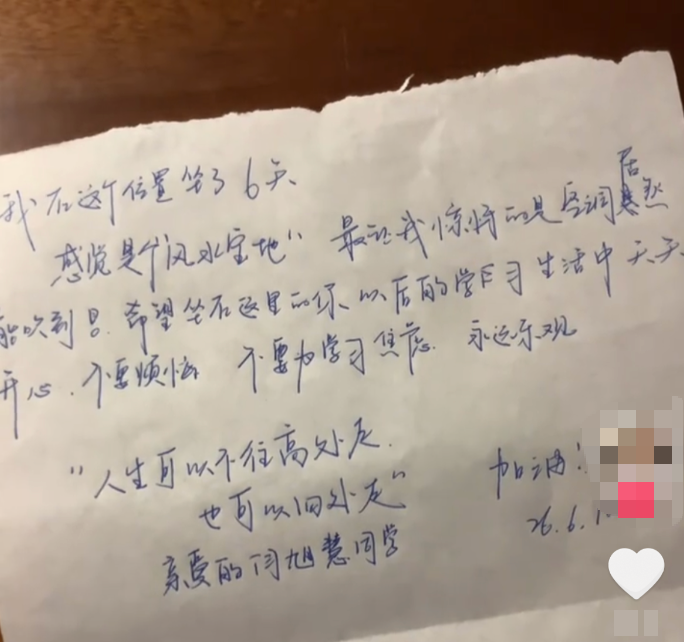 我在这个位置坐了6天
感觉是个"风水宝地" 最让我惊悕的是空调居然
能吹到 希望坐在这里的你 以后的学习生活中天天
开心.不要烦恼 不要为学习焦虑. 永远乐观
"人生可以不往高处走.
也可以四处走"
加油!
26.6.1
亲爱的闫旭慧同学